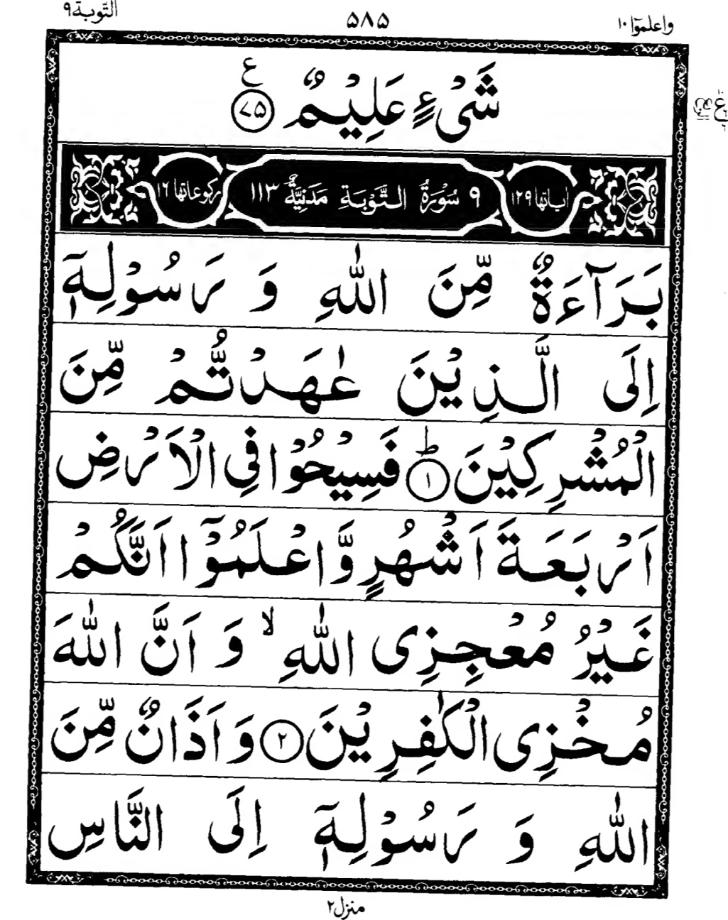 التوبة ۹
۵۸۵
واعلموٓا ۱۰
شَیْءٍ عَلِیْمٌ ۷۵ ع
اٰیاتها ۱۲۹ ۹ سُوْرَةُ التَّوْبَةِ مَدَنِیَّةٌ ۱۱۳ رکوعاتها ۱۶
بَرَآءَةٌ مِّنَ اللّٰهِ وَ رَسُوْلِهٖۤ
اِلَی الَّذِیْنَ عٰهَدْتُّمْ مِّنَ
الْمُشْرِكِیْنَ ؕ ۱ فَسِیْحُوْا فِی الْاَرْضِ
اَرْبَعَةَ اَشْهُرٍ وَّاعْلَمُوْۤا اَنَّكُمْ
غَیْرُ مُعْجِزِی اللّٰهِ ۙ وَ اَنَّ اللّٰهَ
مُخْزِی الْكٰفِرِیْنَ ۲ وَ اَذَانٌ مِّنَ
اللّٰهِ وَ رَسُوْلِهٖۤ اِلَی النَّاسِ
منزل ۲